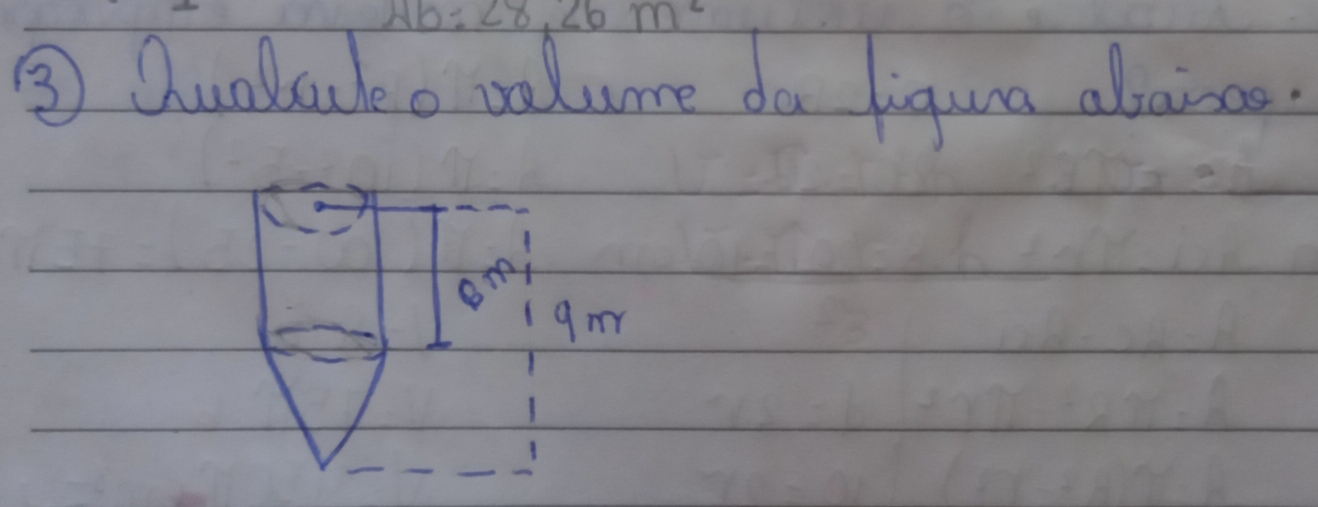 Ab = 28,26 m²
③ Qualcule o valume da figura abaixo.
6 m
9 m